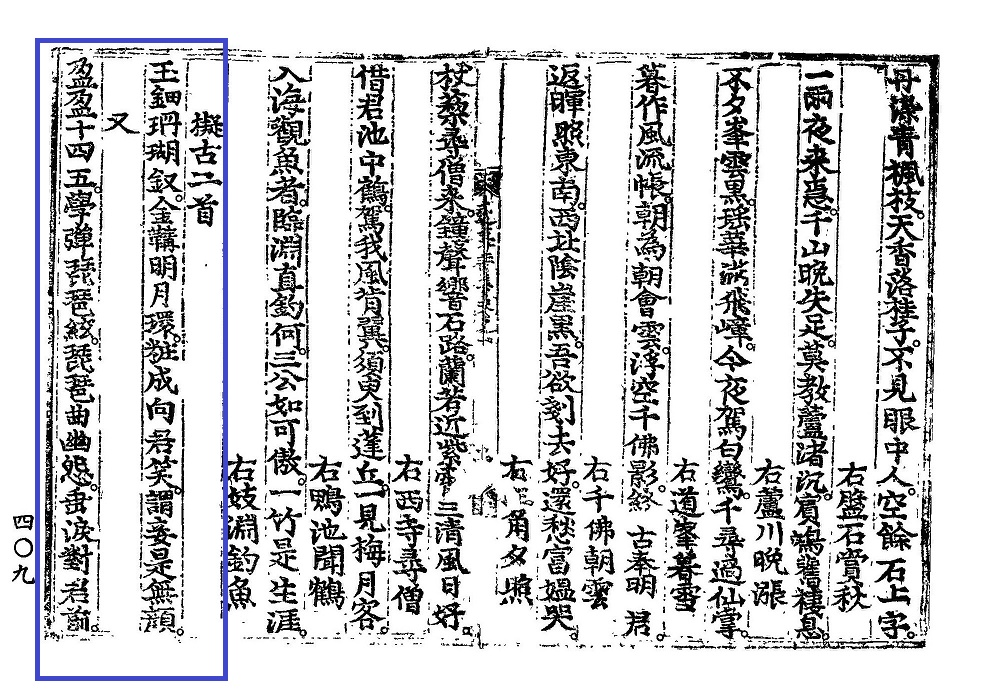 丹青楓枝。天香落桂子。不見眼中人。空餘石上字。
右盤石賞秋
一雨夜來急。千山晚失足。莫教蘆渚沉。賓鴻舊棲息。
右蘆川晚漲
不夕峯雲黑。瑤華飛嶂。今夜駕白鸞。千尋過仙掌。
右道峯暮雪
暮作風流帳。朝為朝會雲。浮空千佛影。終古奉明君。
右千佛朝雲
返暉照東南。西北陰崖黑。吾欲剗去好。還愁富媼哭。
右角夕照
杖藜尋僧來。鐘聲響石路。蘭若近紫帝。三清風日好。
右西寺尋僧
借君池中鶴。駕我風背翼。須臾到蓬丘。一見梅月客。
右鴨池聞鶴
入海觀魚者。臨淵直釣何。三公如可傲。一竹是生涯。
右妓淵釣魚
擬古二首
玉鈿珊瑚釵。金鞲明月環。粧成向君笑。謂妾是無顏。
又
盈盈十四五。學彈琵琶絃。琵琶曲幽怨。垂淚對君前。
四〇九